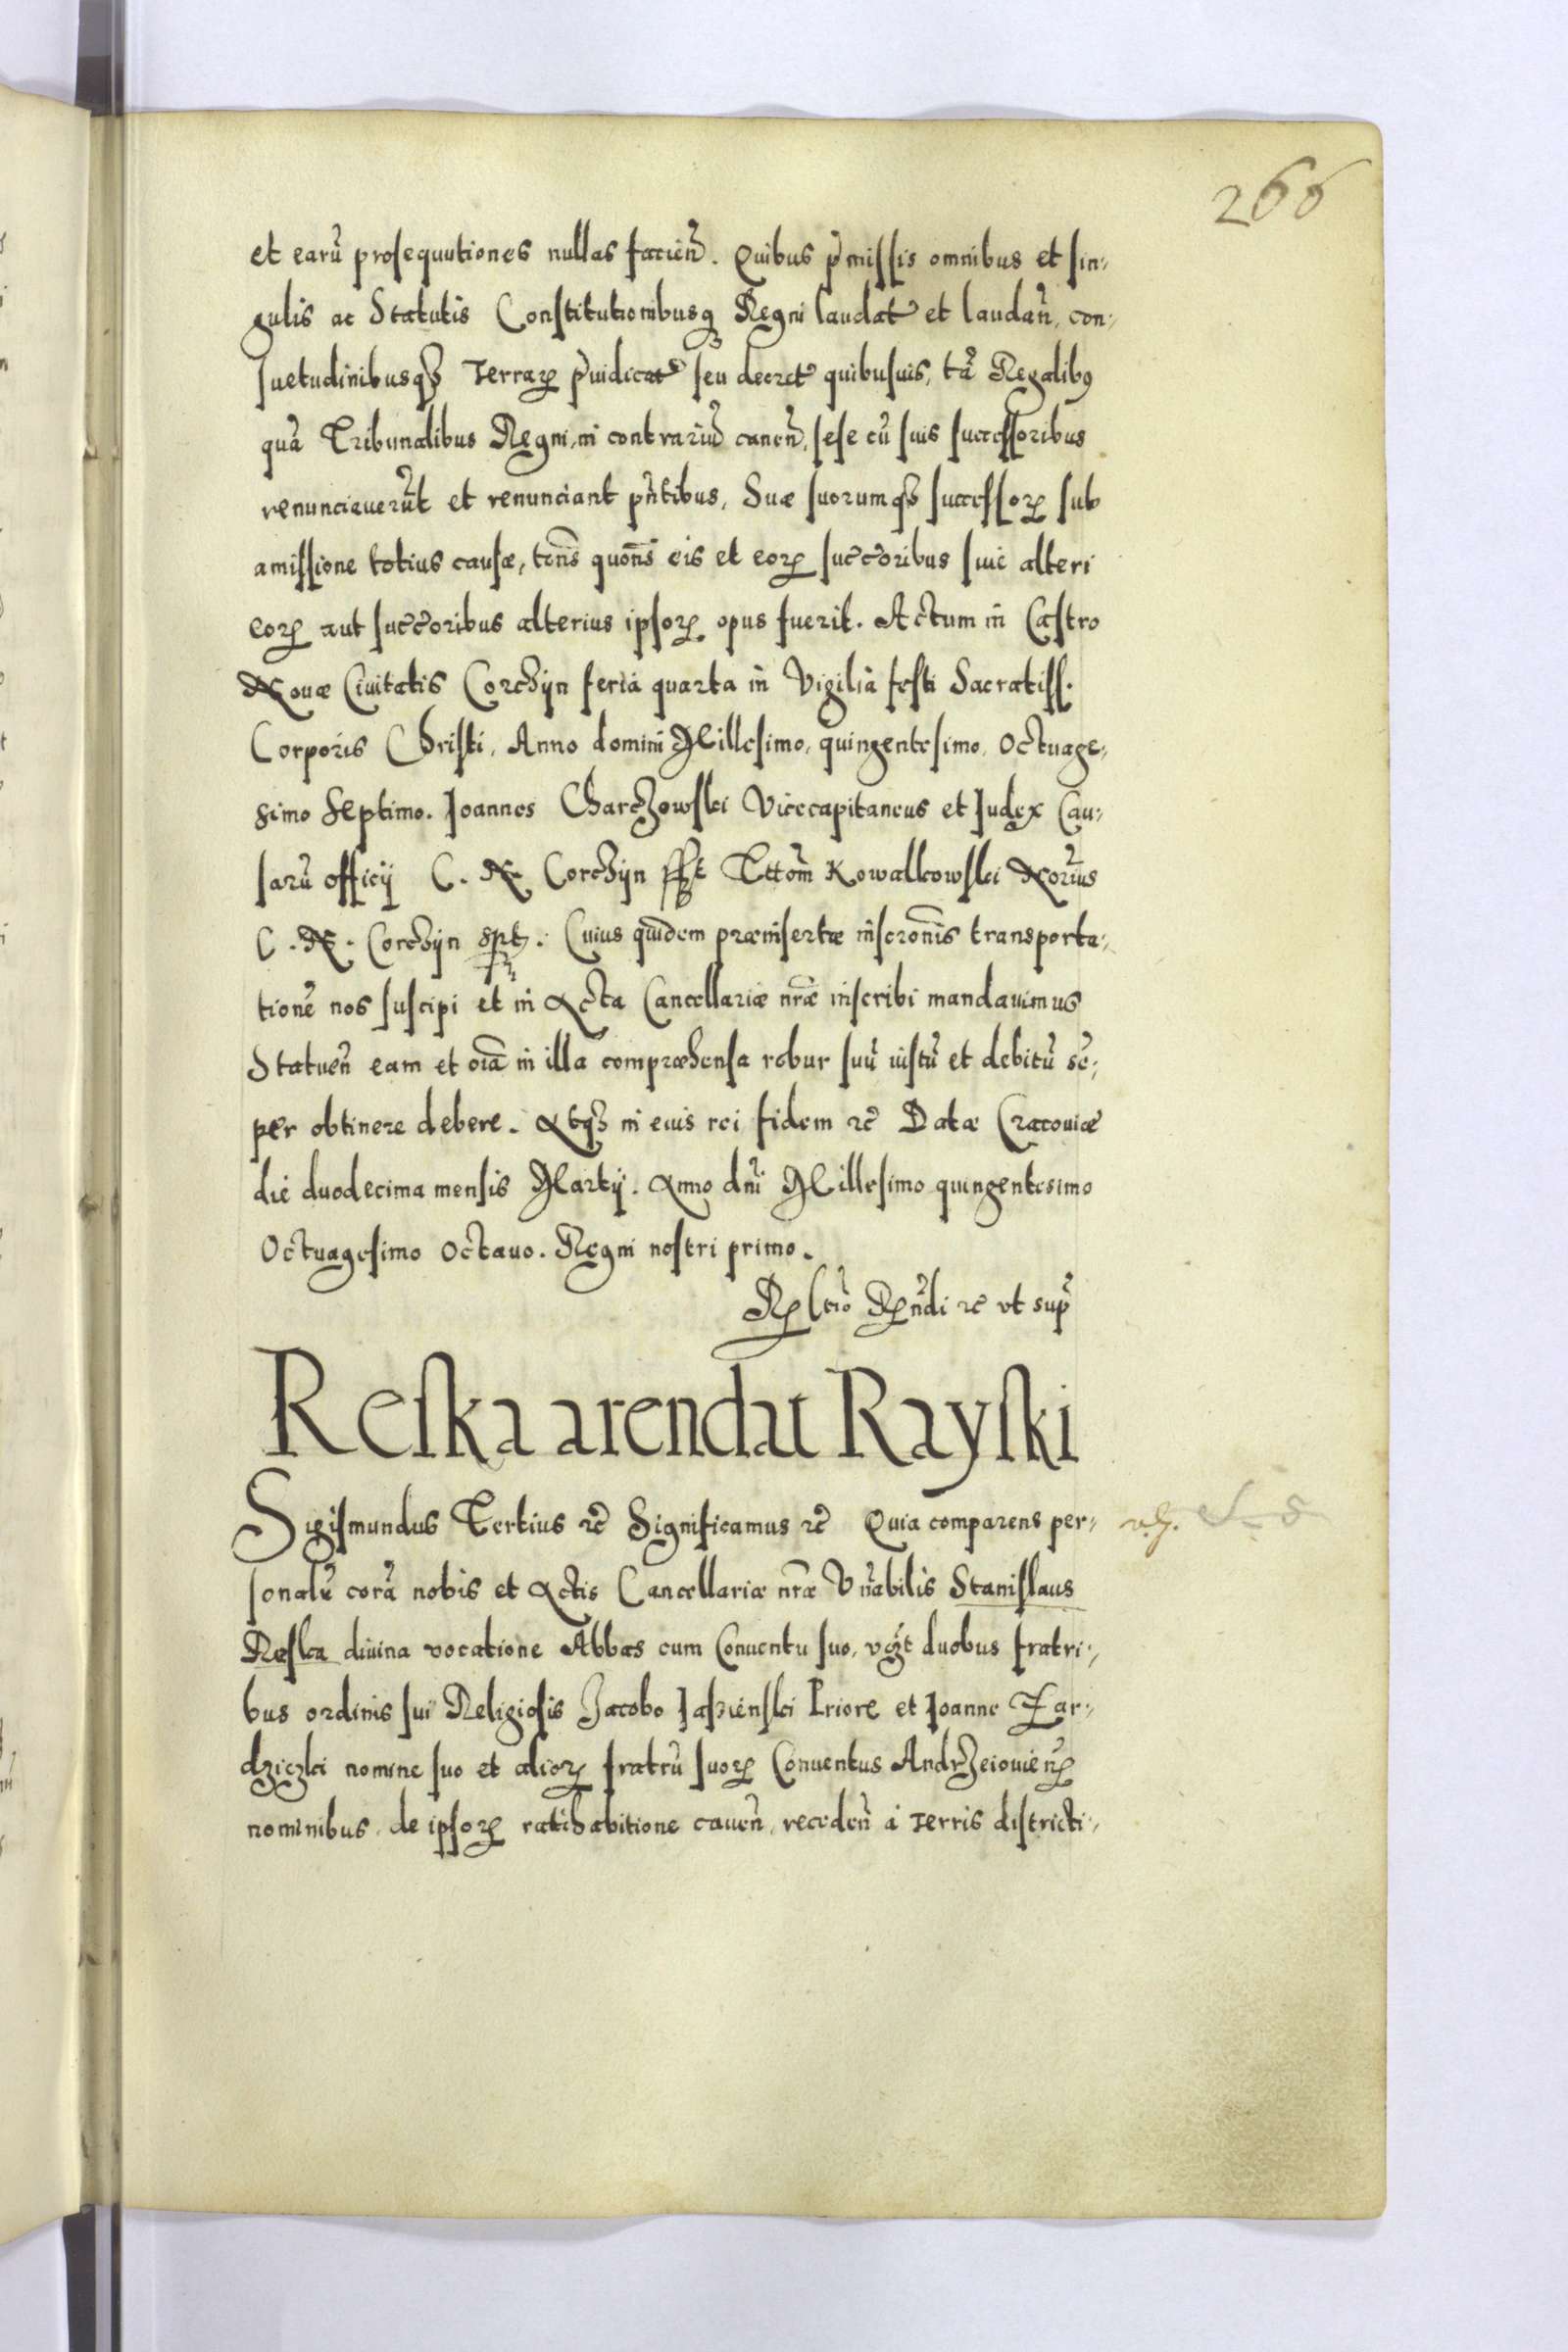 266
et earũ prosequutiones nullas facieñ. Quibus p̃missis omnibus et sin-
gulis ac Statutis Constitutionibusq̃ Regni laudat et laudañ, con-
suetudinibusq̃ Terrarꝝ p̃iudicat seu decret quibusuis, tã Regalibꝰ
quã Tribunalibus Regni, in contrariũ caneñ, sese cũ suis successoribus
renunciauerũt et renunciant pñtibus, Suæ suorumq̃ successorꝝ sub
amissione totius causæ, toñs quoñs eis et eorꝝ succ̃oribus siue alteri
eorꝝ aut succ̃oribus alterius ipsorꝝ opus fuerit. Actum in Castro
Nouæ Ciuitatis Corchijn feria quarta in Vigilia festi Sacratiss.
Corporis Christi, Anno domini Millesimo, quingentesimo, Octuage-
simo Septimo. Joannes Charczowski Vicecapitaneus et Judex Cau-
sarũ officij C. N. Corchijn sst Kowalkowski Norius
C. N. Corchijn spt. Cuius quidem præinsertæ inscrōnis transporta-
tionẽ nos suscipi et in Acta Cancellariæ nr̃æ inscribi mandauimus
Statueñ eam et oĩa in illa compræhensa robur suũ iustũ et debitũ sẽ-
per obtinere debere. Atq̃ in euis rei fidem ꝛc̃ Datæ Cracouiæ
die duodecima mensis Martij. Anno dñi Millesimo quingentesimo
Octuagesimo Octauo. Regni nostri primo.
Rꝑltio Rꝑñdi ꝛc̃ vt sup̃
Reska arendat Rayski
Sigismundus Tertius ꝛc̃ Significamus ꝛc̃ Quia comparens per-
sonalr̃ corã nobis et Actis Cancellariæ nr̃æ Vñabilis Stanislaus
Reska diuina vocatione Abbas cum Conuentu suo, vꝫt duobus fratri-
bus ordinis sui Religiosis Jacobo Jasienski Priore et Joanne Zar-
dziczki nomine suo et aliorꝝ fratrũ suorꝝ Conuentus Andrzeiouieñꝝ
nominibus, de ipsorꝝ ratihabitione caueñ, recedeñ à Terris districti-